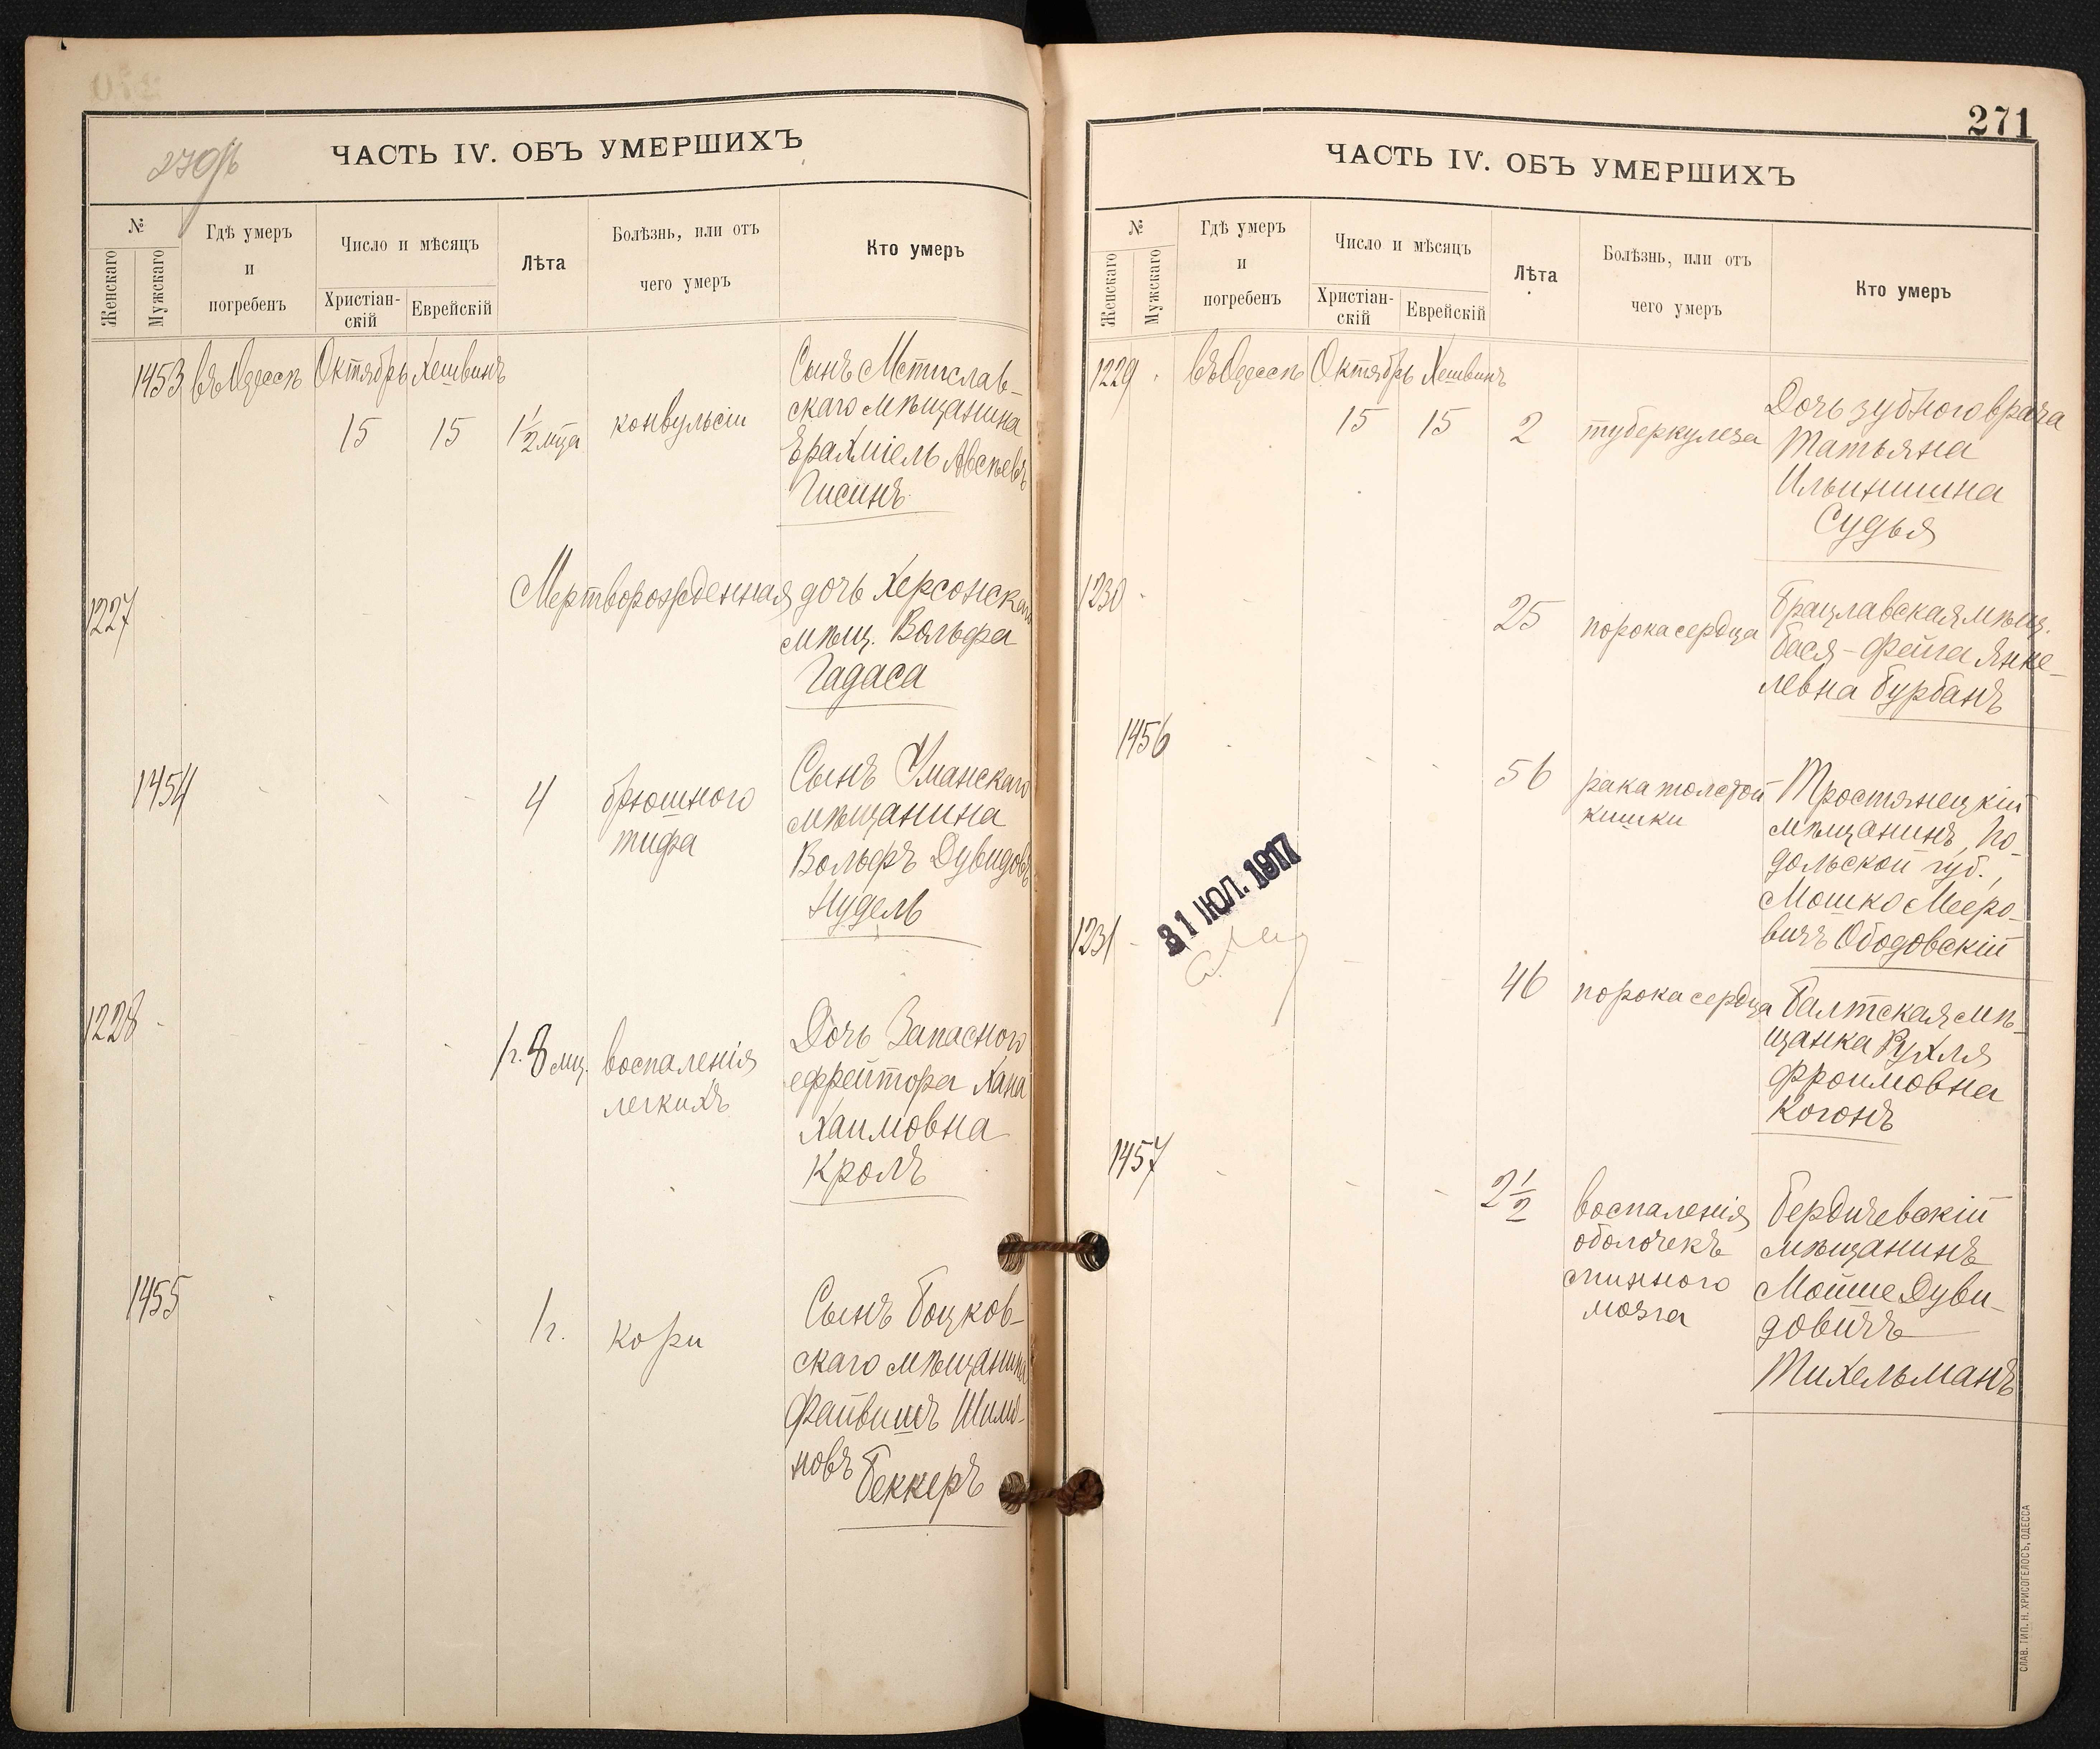 270 об
ЧАСТЬ IV. ОБЪ УМЕРШИХЪ
№
Женскаго
Мужскаго
Гдѣ умеръ
и
погребенъ
Число и мѣсяцъ
Христіан-
скій
Еврейскій
Лѣта
Болѣзнь, или отъ
чего умеръ
Кто умеръ
1453 въ Одессѣ Октябрь Хешвинъ
15 15 1 1/2 мца конвульсіи
Сынъ Мстислав-
скаго мѣщанина
Ерахміель Авсѣевъ
Гисинъ
1227 Мертворожденная дочь Херсонскаго
мѣщ. Вольфа
Гадаса
1454 4 брюшного
тифа
Сынъ Уманскаго
мѣщанина
Вольфъ Дувидовъ
Нудель
1228 1 г. 8 мц. воспаленія
легкихъ
Дочь Запасного
ефрейтора Хана
Хаимовна
Кролъ
1455 1 г. кори
Сынъ Боцков-
скаго мѣщанина
Файвишъ Шимо-
новъ
Беккеръ
271
ЧАСТЬ IV. ОБЪ УМЕРШИХЪ
№
Женскаго
Мужскаго
Гдѣ умеръ
и
погребенъ
Число и мѣсяцъ
Христіан-
скій
Еврейскій
Лѣта
Болѣзнь, или отъ
чего умеръ
Кто умеръ
1229 въ Одессѣ Октябрь Хешвинъ
15 15 2 туберкулеза
Дочь зубного врача
Татьяна
Ильинишна
Судья
1230 25 порока сердца
Брацлавская мѣщ.
Бася-Фейга Янке-
левна Бурбанъ
1456 56 рака толстой
кишки
Тростянецкій
мѣщанинъ, По-
дольской губ.,
Мошко Мееро-
вичъ Ободовскій
31 ІЮЛ. 1917
1231 46 порока сердца
Балтская мѣ-
щанка Рухля
Фроимовна
Когонъ
1457 2 1/2 воспаленія
оболочекъ
спинного
мозга
Бердичевскій
мѣщанинъ
Мойше Дуви-
довичъ
Тихельманъ
СЛАВ. ТИП. Н. ХРИСОГЕЛОСЪ, ОДЕССА